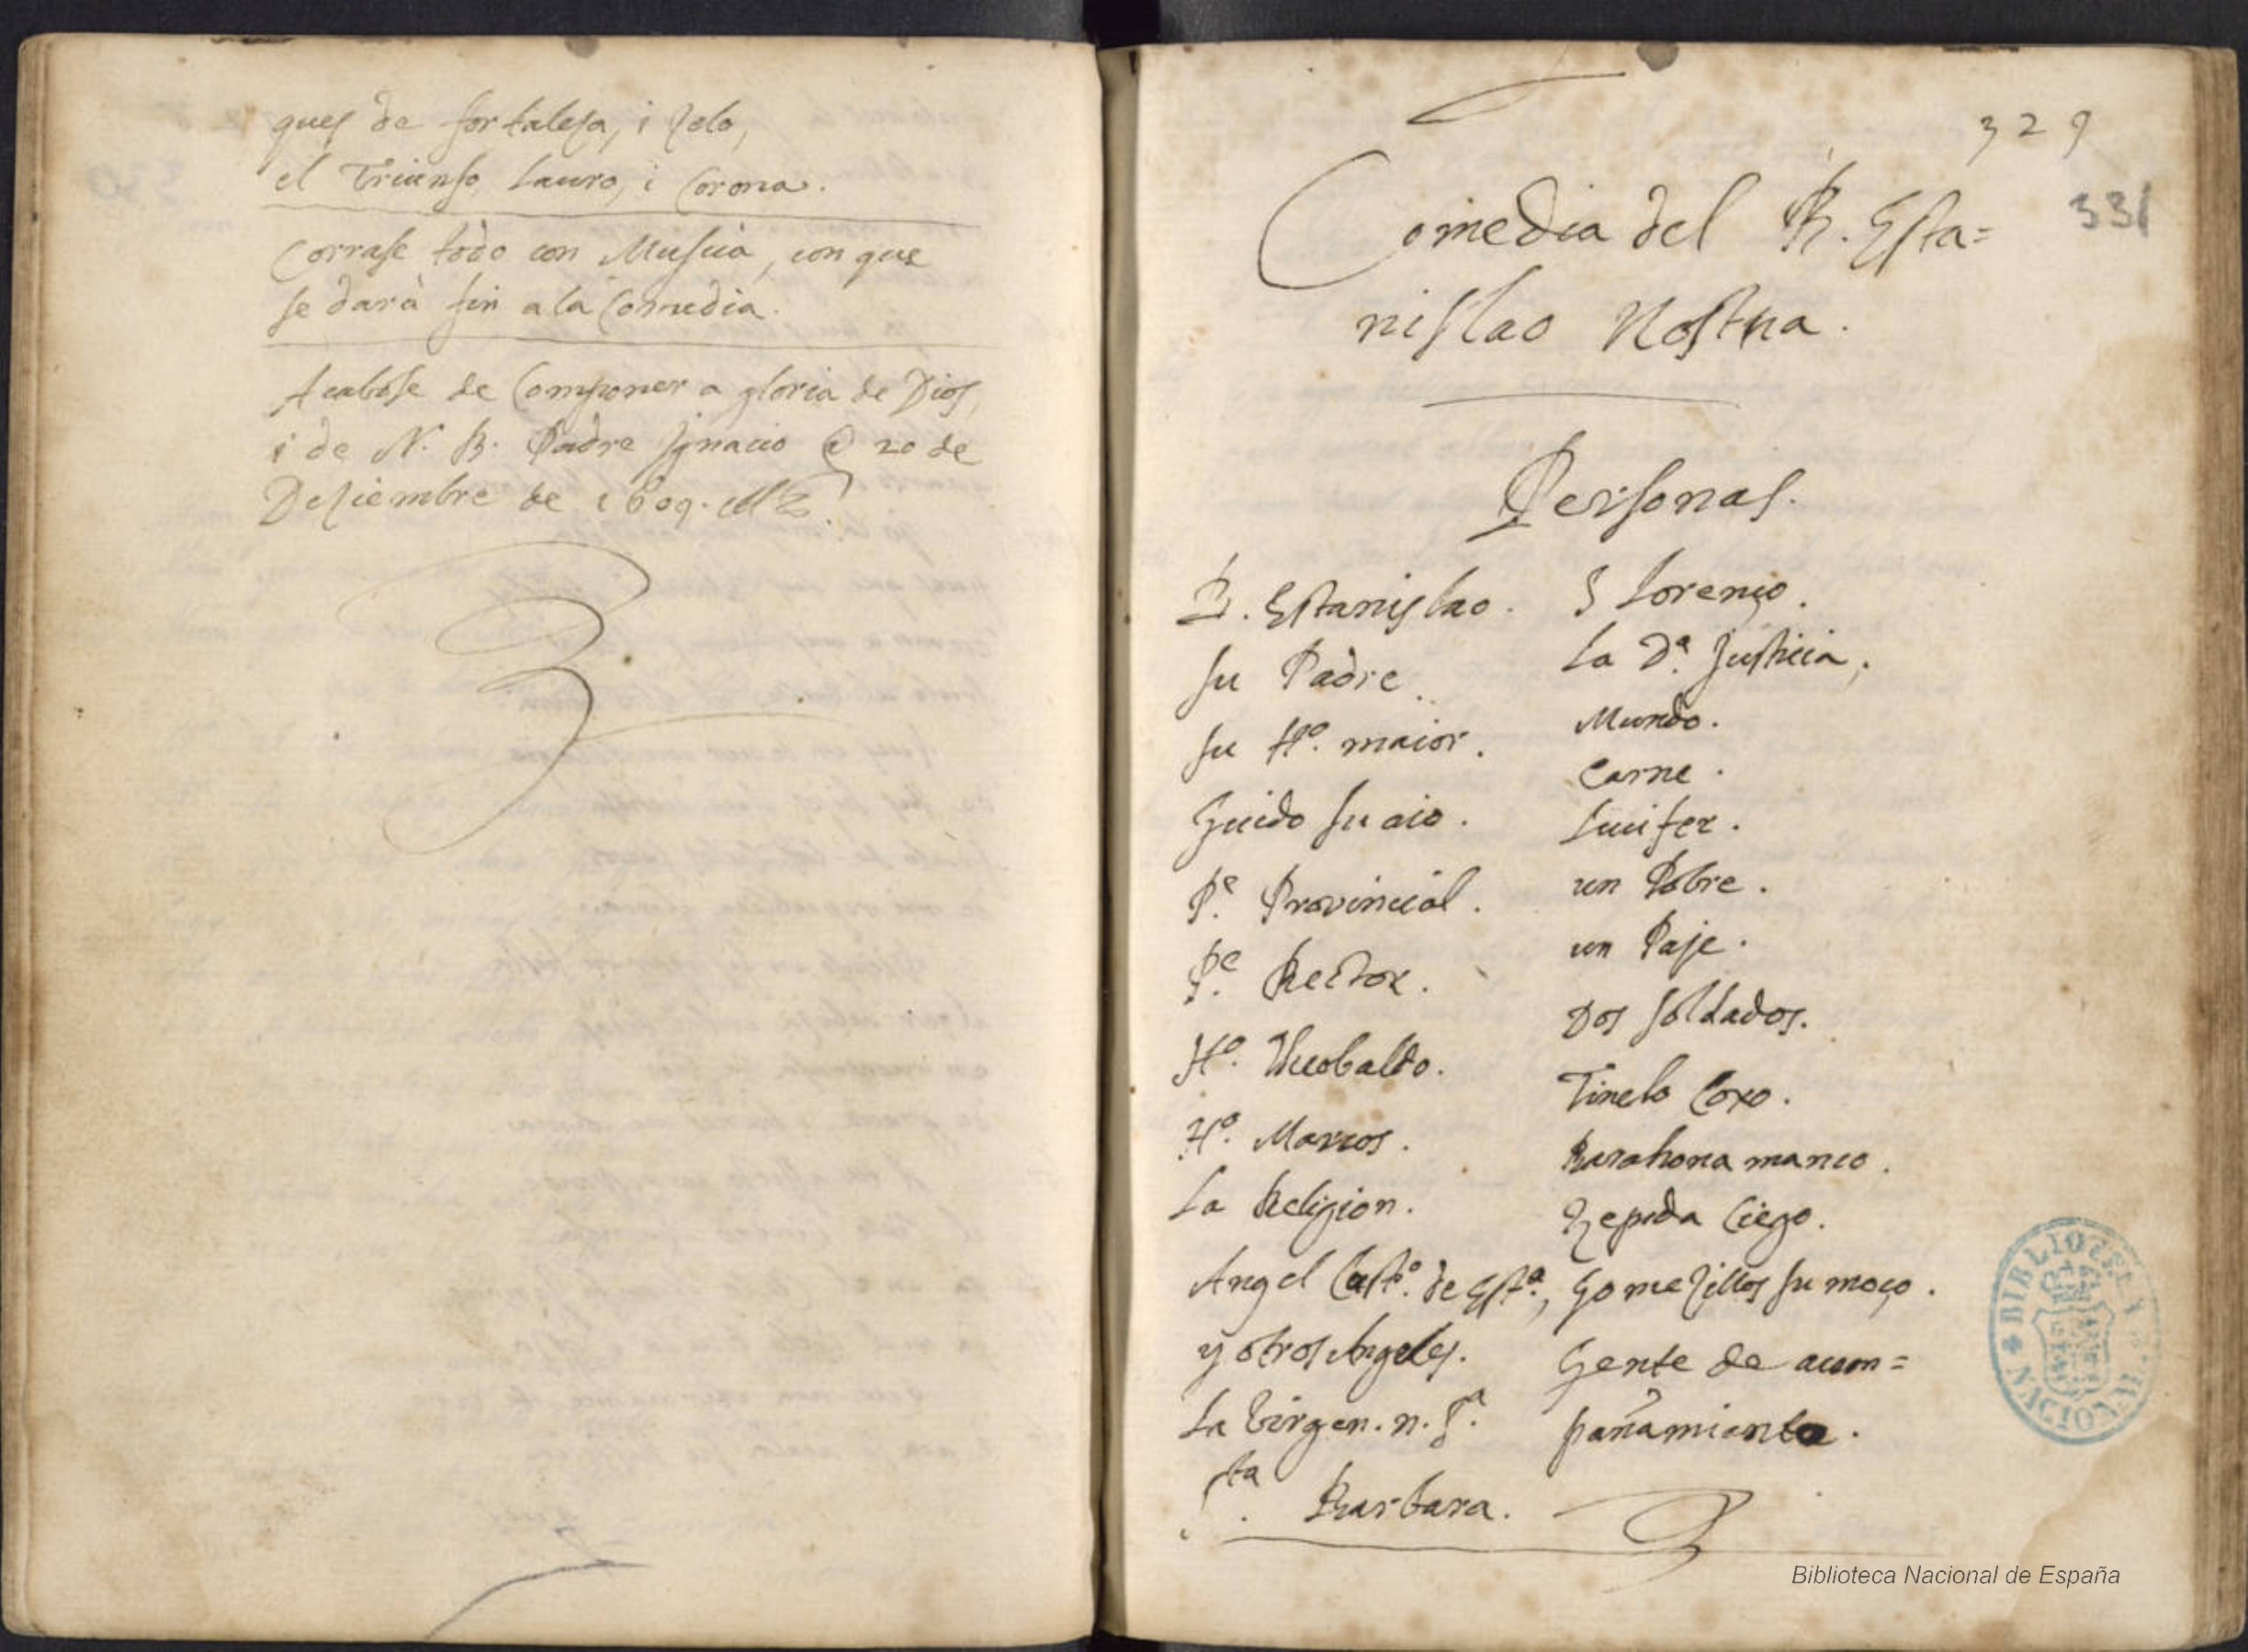 ques de fortaleza, i zelo,
el Triunfo, Lauro, i Corona.
Corrase todo con Musica, con que
se darà fin a la Comedia.
Acabose de Componer a gloria de Dios,
i de N. B. Padre Ignacio @ 20 de
Deziembre de 1609.
329
331
Comedia del B. Esta=
nislao Kostka.
Personas.
B. Estanislao.
su Padre.
su Hº. maior.
Guido su aio.
Pe. Provincial.
Pe. Rector.
Hº. Ucobaldo.
Hº. Marcos.
La Religion.
Angel Custº. de Estº.,
y otros Angeles.
La Virgen. n. Sª.
Sta. Barbara.
S Lorenço.
La Dª. Justicia.
Mundo.
Carne.
Lucifer.
un Pobre.
un Paje.
Dos soldados.
Tinelo Coxo.
Barahona manco.
Zepeda Ciego.
Gomezillos su moço.
Gente de acom=
pañamiento.
BIBLIOTECA NACIONAL
Biblioteca Nacional de España